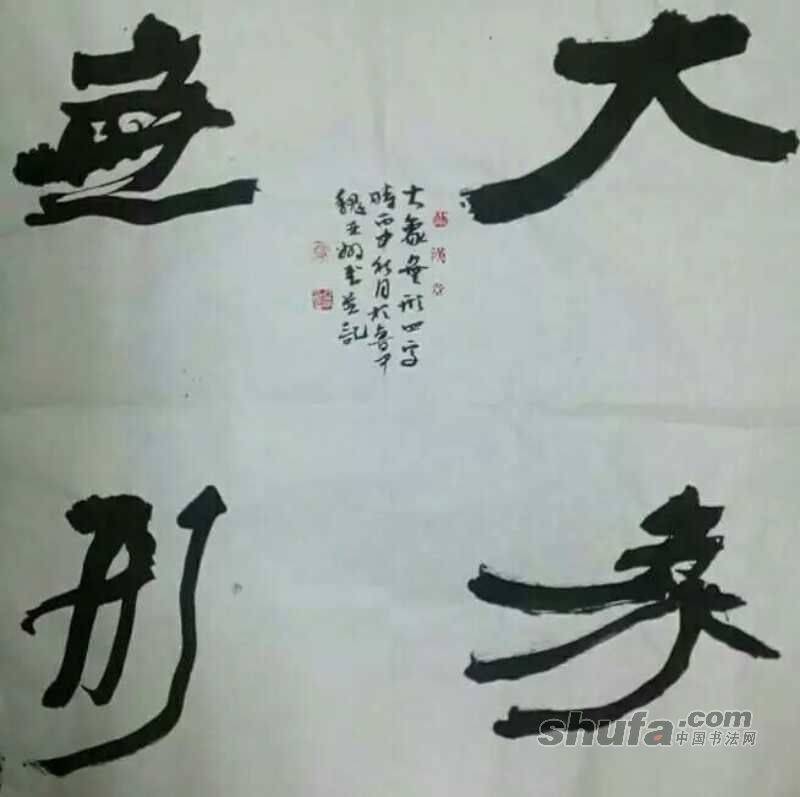 大象
無形
大象無形四字
時丙申秋月於魯中
魏亚
書并記
shufa.com
中国书法网